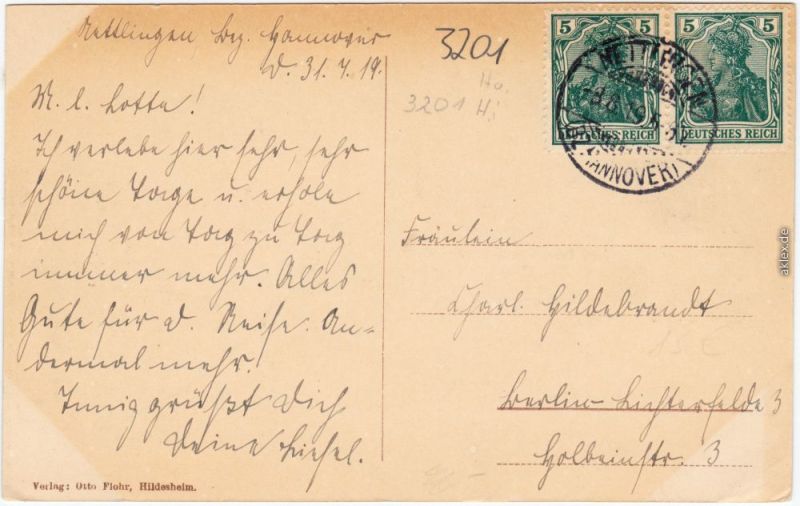 Nettlingen Bez. Hannover
d. 31.7.19.
M. l. Lotte!
Ich verlebe hier sehr, sehr
schöne Tage u. erhole
mich von Tag zu Tag
immer mehr. Alles
Gute für d. Reise. An-
dermal mehr.
Innig grüßt Dich
Deine Liesel.
Verlag: Otto Flohr, Hildesheim.
3201
Ha.
3201 Hi
5 5
5 5
DEUTSCHES REICH
DEUTSCHES REICH
NETTLINGEN
(HANNOVER)
Fräulein
Charl. Hildebrandt
15 €
Berlin-Lichterfelde 3
Holbeinstr. 3
aklex.de